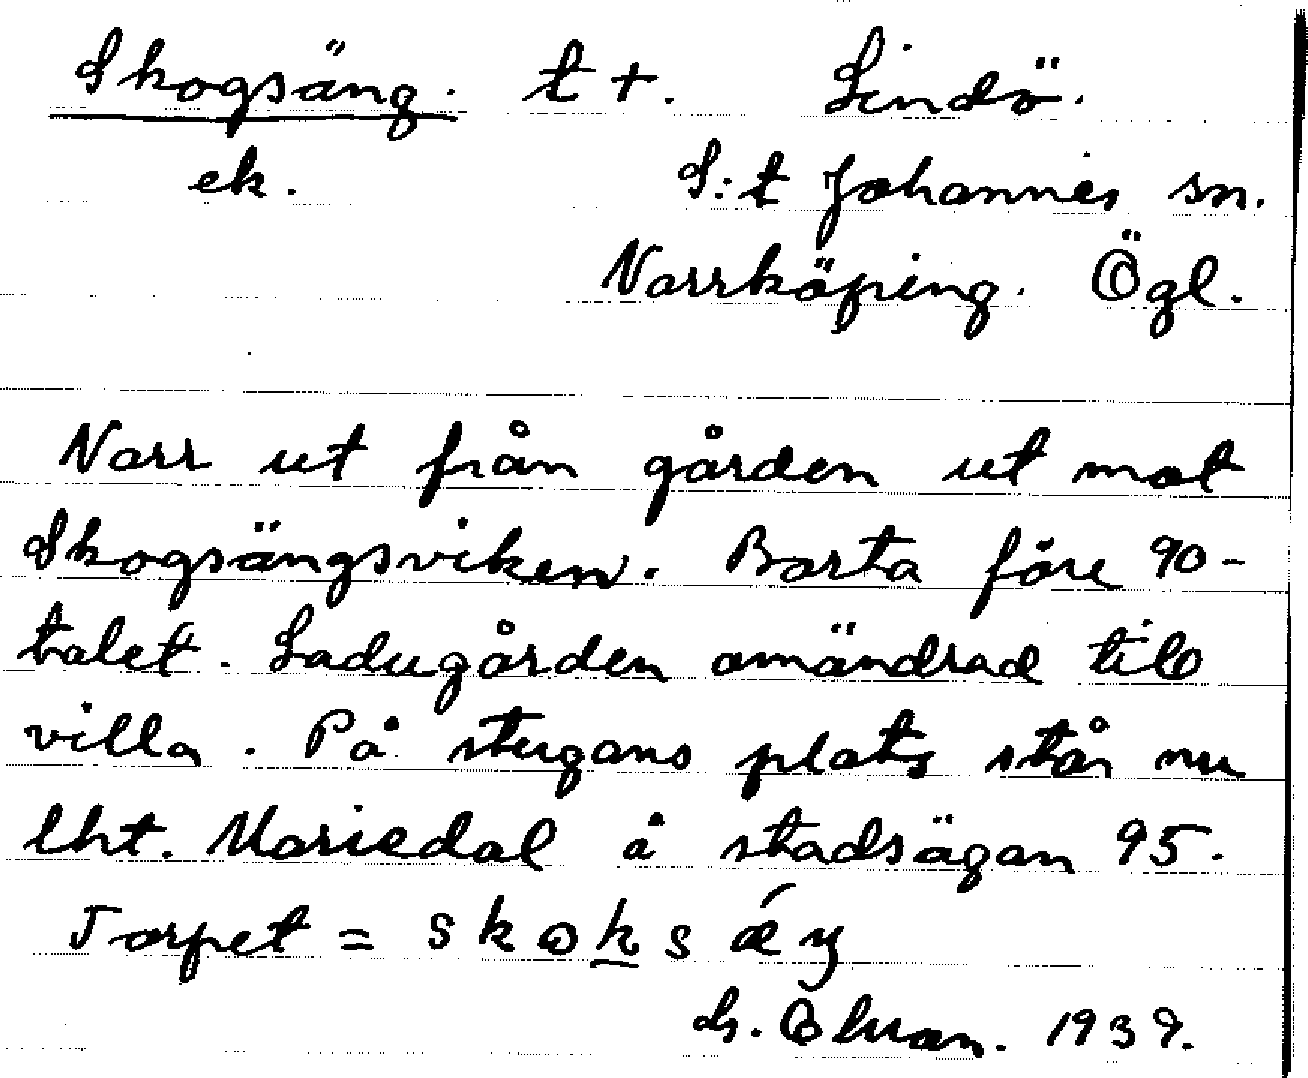 Skogsäng. t +. Lindö.
ek. S:t Johannes sn.
Norrköping. Ögl.
Norr ut från gården ut mot
Skogsängsviken. Borta före 90-
talet. Ladugården omändrad till
villa. På stugans plats står nu
lht. Mariedal å stadsägan 95.
Torpet = skoksǽŋ
1939.